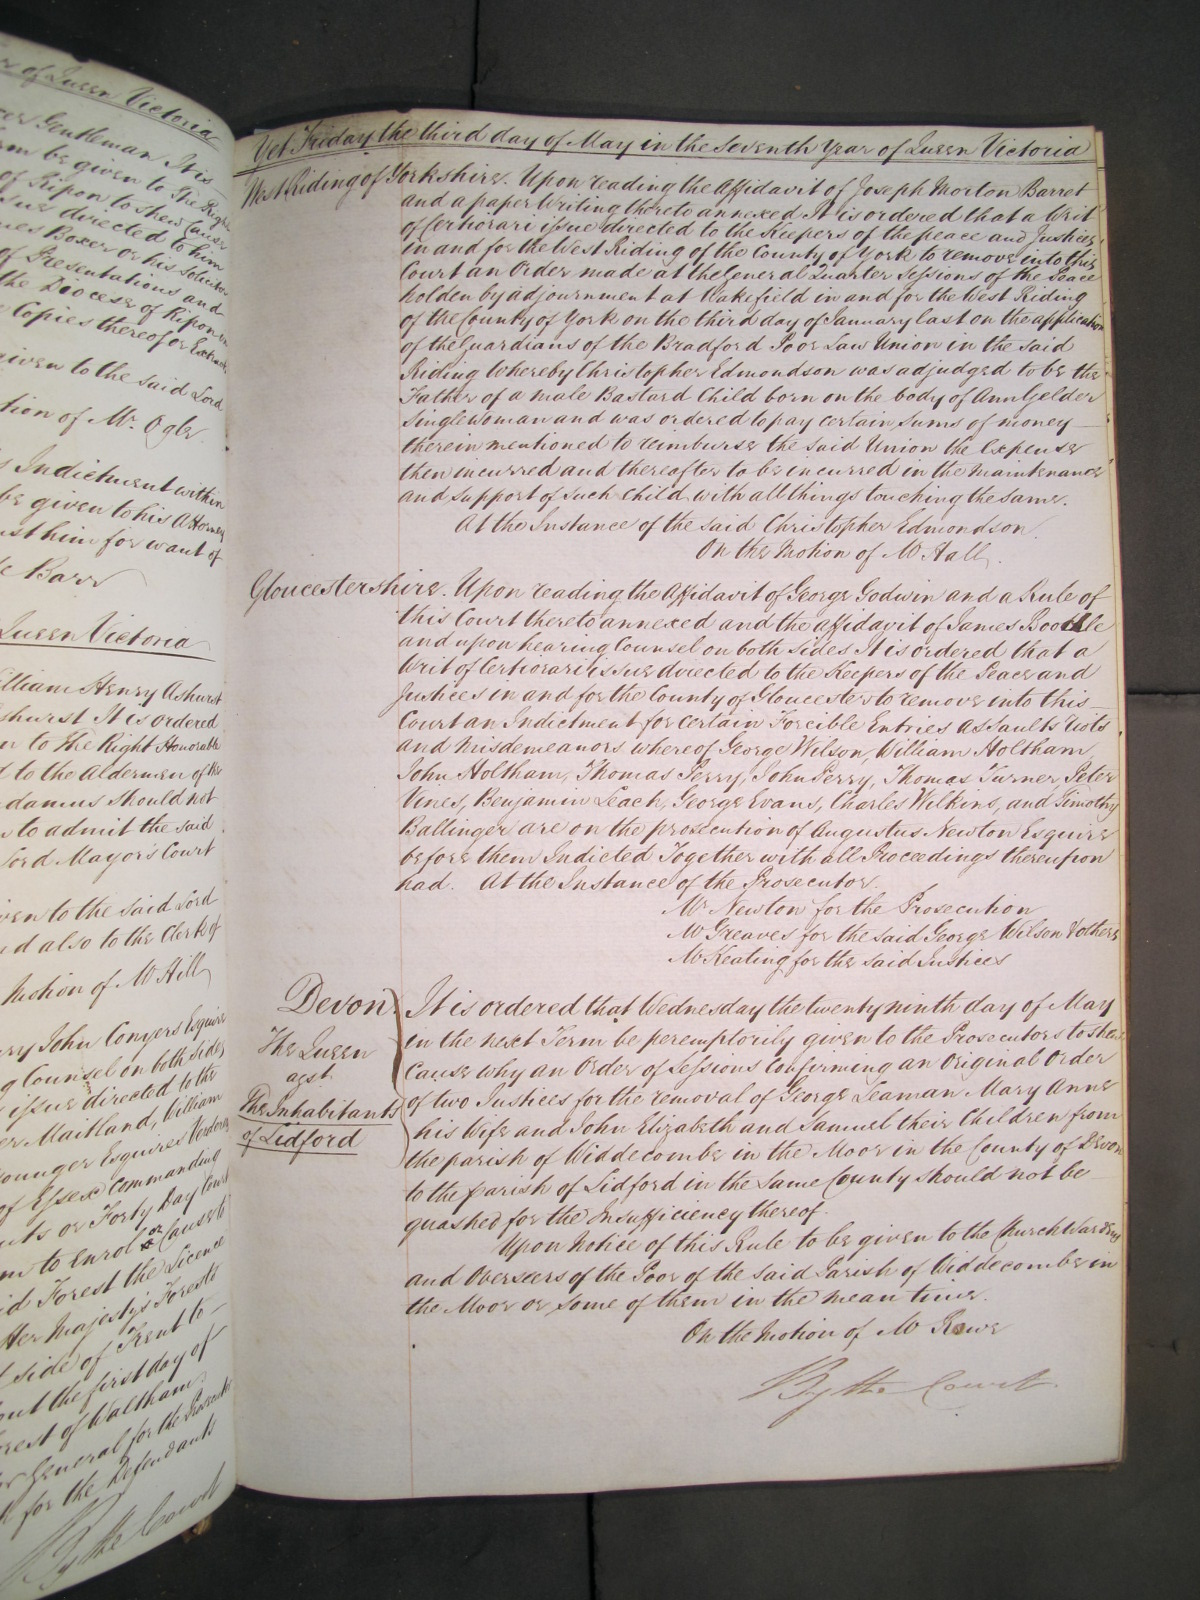 r of Queen Victoria
Gentleman It is
be given to The Right
of Ripon to shew Cause
directed to him
Boxer or his Solicitor
of Presentations and
the Diocese of Ripon
Copies thereof or Extracts
given to the said Lord
tion of Mr. Ogle
Indictment within
be given to his Attorney
him for want of
Barr
Queen Victoria
William Henry Ashurst
hurst It is ordered
to The Right Honorable
to the Aldermen of the
damus should not
to admit the said
Lord Mayor's Court
to the said Lord
d also to the Clerk of
Motion of Mr Hill
John Conyers Esquire
Counsel on both sides
issue directed to the
Maitland, William
ounger Esquires Verderers
of Essex Commanding
or Forty Day Court
to enrol or Cause to
Forest the Licence
Her Majesty's Forests
side of Trent to
out the first day of
orest of Waltham
General for the Prosecutor
for the Defendants
By the Court
Yet Friday the third day of May in the Seventh Year of Queen Victoria
West Riding of Yorkshire. Upon reading the Affidavit of Joseph Morton Barret
and a paper Writing thereto annexed It is ordered that a Writ
of Certiorari issue directed to the Keepers of the peace and Justices
in and for the West Riding of the County of York to remove into this
Court an Order made at the General Quarter Sessions of the Peace
holden by adjournment at Wakefield in and for the West Riding
of the County of York on the third day of January last on the application
of the Guardians of the Bradford Poor Law Union in the said
Riding Whereby Christopher Edmondson was adjudged to be the
Father of a male Bastard Child born on the body of Ann Gelder
Singlewoman and was ordered to pay certain Sums of money
therein mentioned to reimburse the said Union the Expense
then incurred and thereafter to be incurred in the maintenance
and support of such Child with all things touching the same.
At the Instance of the said Christopher Edmondson.
On the Motion of Mr Hall.
Gloucestershire. Upon reading the Affidavit of George Godwin and a Rule of
this Court thereto annexed and the affidavit of James
and upon hearing Counsel on both sides It is ordered that a
Writ of Certiorari issue directed to the Keepers of the Peace and
Justices in and for the County of Gloucester to remove into this
Court an Indictment for certain Forcible Entries Assaults Riots
and Misdemeanors whereof George Wilson, William Holtham,
John Holtham, Thomas Perry, John Perry, Thomas Turner, Peter
Vines, Benjamin Leach, George Evans, Charles Wilkins, and Timothy
Ballinger are on the prosecution of Augustus Newton Esquire
before them Indicted Together with all Proceedings thereupon
had. At the Instance of the Prosecutor.
Mr Newton for the Prosecution
Mr Greaves for the said George Wilson & others
Mr Keating for the said Justices
Devon.
The Queen
agst
The Inhabitants
of Lidford
It is ordered that Wednesday the twenty ninth day of May
in the next Term be peremptorily given to the Prosecutors to shew
Cause why an Order of Sessions Confirming an Original Order
of two Justices for the removal of George Leaman Mary Anne
his Wife and John Elizabeth and Samuel their Children from
the parish of Widdecombe in the Moor in the County of Devon
to the parish of Lidford in the same County should not be
quashed for the Insufficiency thereof.
Upon Notice of this Rule to be given to the Church Wardens
and Overseers of the Poor of the said Parish of Widdecombe in
the Moor or some of them in the mean time.
On the Motion of Mr Rowe
By the Court